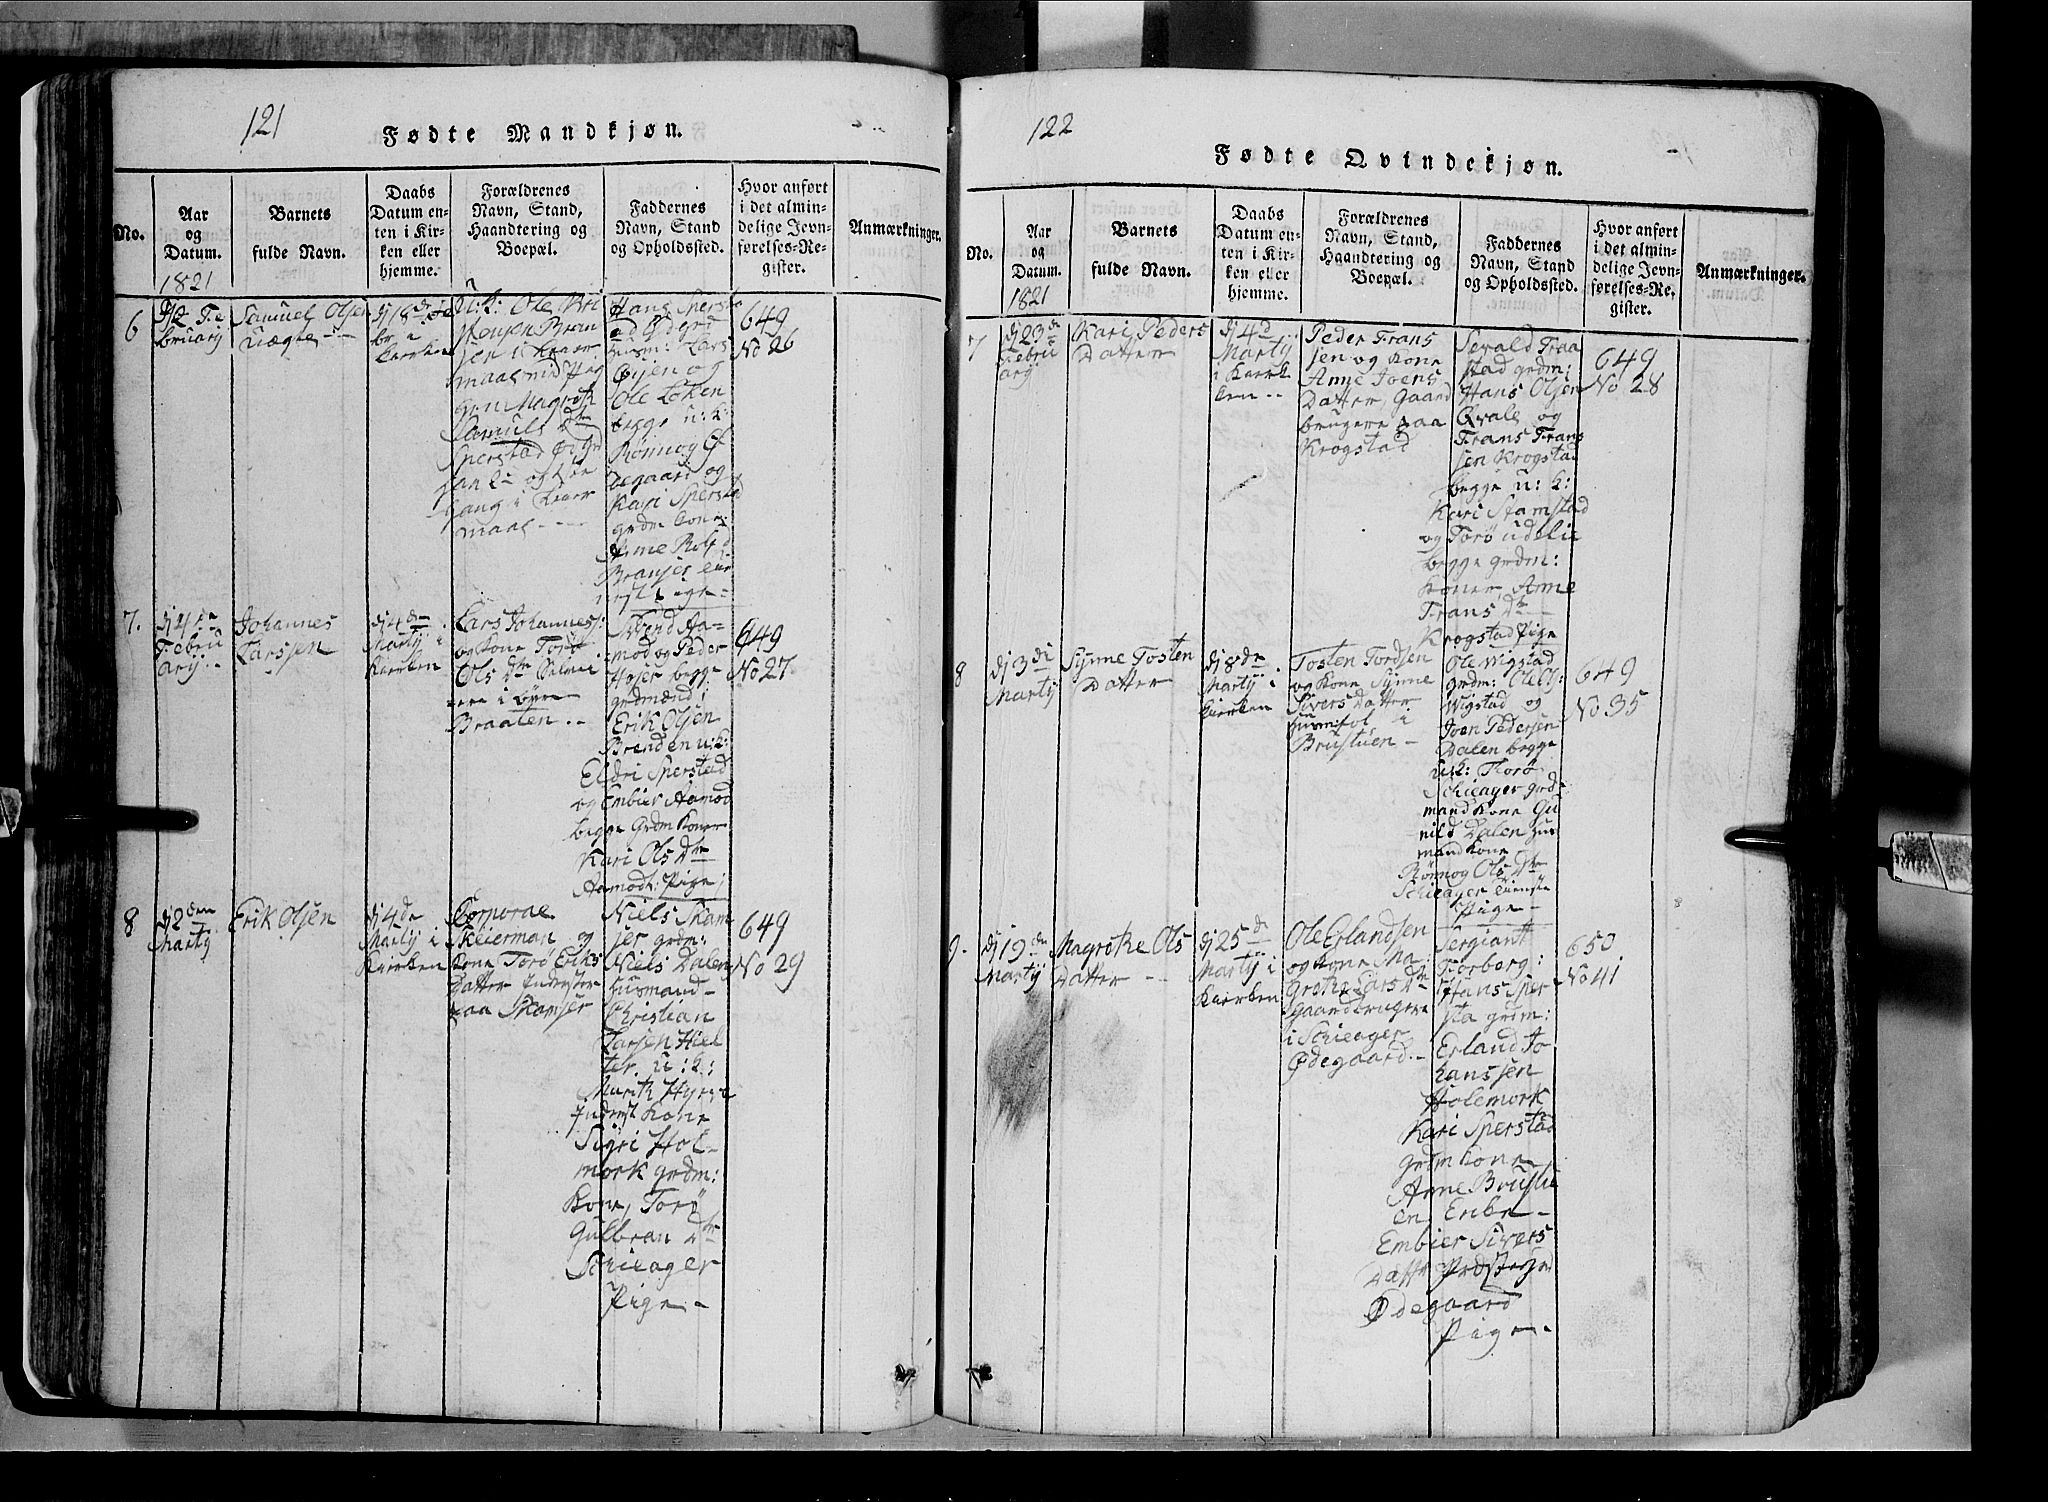 121
Fødte Mandkjøn.
No.
Aar
og
Datum.
1821
Barnets
fulde Navn.
Daabs
Datum en-
ten i Kir-
ken eller
hjemme.
Forældrenes
Navn, Stand,
Haandtering og
Boepæl.
Faddernes
Navn, Stand
og Opholdssted.
Hvor anført
i det almin-
delige Jevn-
førelses-Re-
gister.
Anmærkninger.
6
Samuel Olsen
Uægte
u: k: Ole
maal
Samuels Dtr
Sperstad
Hans Spersta
Øyen og
Ole Løken
begge u: k:
Rønnog Ø
degaard og
Kari Spersta
grdm kone
649
No 26
7.
dj 4de
Febru
arij
Johannes
Larssen
dj 4de
Martij i
Kierken
Lars Johannes:
og kone Torø
Ols Dtr
Braaten
Svend Aa-
mod og Peder
begge
grdmænd
Erik Olsen
Brenden u: k:
Eldri Sperstad
og Embier Aamod
begge grdm koner
Kari Ols Dtr
Aamodt Pige
649
No 27
8
dj 2den
Martij
Erik Olsen
dj 4de
Martij i
Kierken
Corporal
Skeierman og
kone Torø Eriks
Datter Inderster
paa Skamser
Niels Skam
ser grdm:
Niels Dalen
husmand
Christian
Larsen Hiel
ter. u: k:
Marit
Inderst kone
Sigri Hol-
mork grdm:
kone, Torø
Gulbran Dtr
Schieager
Pige
649
No 29
122
Fødte Qvindekjøn.
No.
Aar
og
Datum.
1821
Barnets
fulde Navn.
Daabs
Datum en-
ten i Kir-
ken eller
hjemme.
Forældrenes
Navn, Stand,
Haandtering og
Boepæl.
Faddernes
Navn, Stand
og Opholdssted.
Hvor anført
i det almin-
delige Jevn-
førelses-Re-
gister.
Anmærkninger.
7
dj 23de
Febru
arij
Kari Peders
Datter
dj 4d
Martij
i Kierk
ken
Peder Frans
sen og kone
Anne Joens
Datter, Gaard
brugere paa
Krogstad
Sevald Fraa
stad grdm:
Hans Olsen
Qvale og
Frans Frans
sen Krogstad
begge u: k:
Kari Stamstad
og Torø udelie
begge grdm:
koner, Anne
Frans Dtr
Krogstad Pige
649
No 28
8
dj 3di
Martij
Synne Tosten
Datter
dj 8de
Martij i
Kierken
Tosten Tordsen
og kone Synne
Sivers Datter
husmfol i
Brustuen
Ole Wigstad
grdm:
Wigstad og
Joen Pedersen
Dalen begge
u: k: Torø
Schieager grd
mand kone Gu
nild Dalen hus
mand kone
Rønnog Ols Dtr
Schieager tieneste
Pige
649
No 35
9.
dj 19de
Martij
Magrethe Ols
Datter
dj 25de
Martij i
Kierken
Ole Erlandsen
og kone Ma
grethe Lars Dtr
Gaardbrugere
i Schieager
Ødegaard
Sergiant
Forberg:
Hans Sper
sta grdm:
Erland Jo
hanssen
Holemork
Kari Sperstad
grdm kone
Anne Brustu
en Enke
Embier Sivers
Datter
Ødegaard
Pige
650
No 41